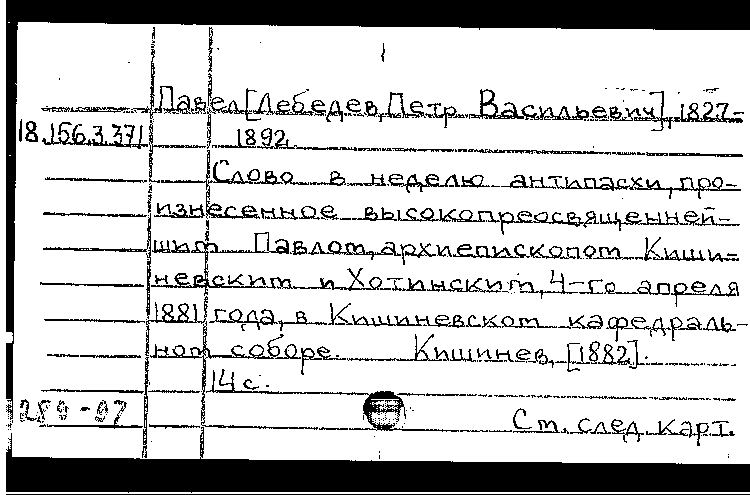 Павел [Лебедев, Петр Васильевич], 1827-
18.156.3.371 1892.
Слово в неделю антипасхи, про-
изнесенное высокопреосвященней-
шим Павлом, архиепископом Киши-
невским и Хотинским, 4-го апреля
1881 года, в Кишиневском кафедраль-
ном соборе. Кишинев, [1882].
14 с.
289-97
См. след. карт.